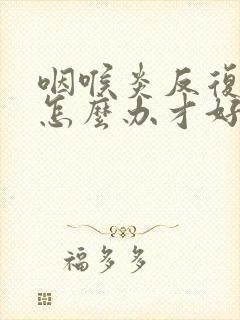 咽喉炎反復
怎麼办才好
福多多